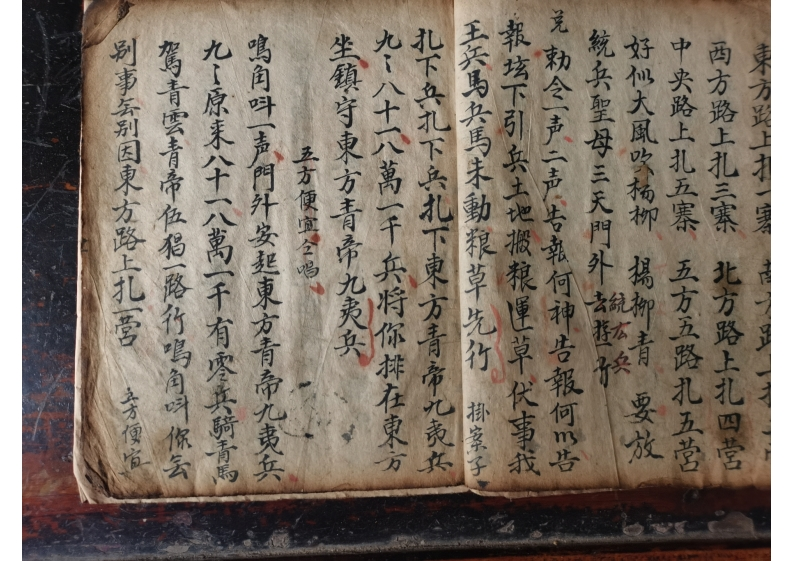 東方路上扎一寨
西方路上扎三寨 北方路上扎四営
中央路上扎五寨 五方五路扎五営
好似大風吹楊柳 楊柳青 要放
統兵聖母三天門外 去
統玄兵
勅令一声二声告報何神告報何以告
報垓下引兵土地搬粮運草伏事我
王兵馬兵馬未動粮草先行 掛案子
扎下兵扎下兵扎下東方青帝九夷兵
九〻八十一八萬一千兵将你排在東方
坐鎮守東方青帝九夷兵
五方便宜仝唱
鳴角呌一声門外安起東方青帝九夷兵
九〻原来八十一八萬一千有零兵騎青馬
駕青雲青帝伍猖一路行鳴角呌你去
别事去别因東方路上扎一営 五方便宜